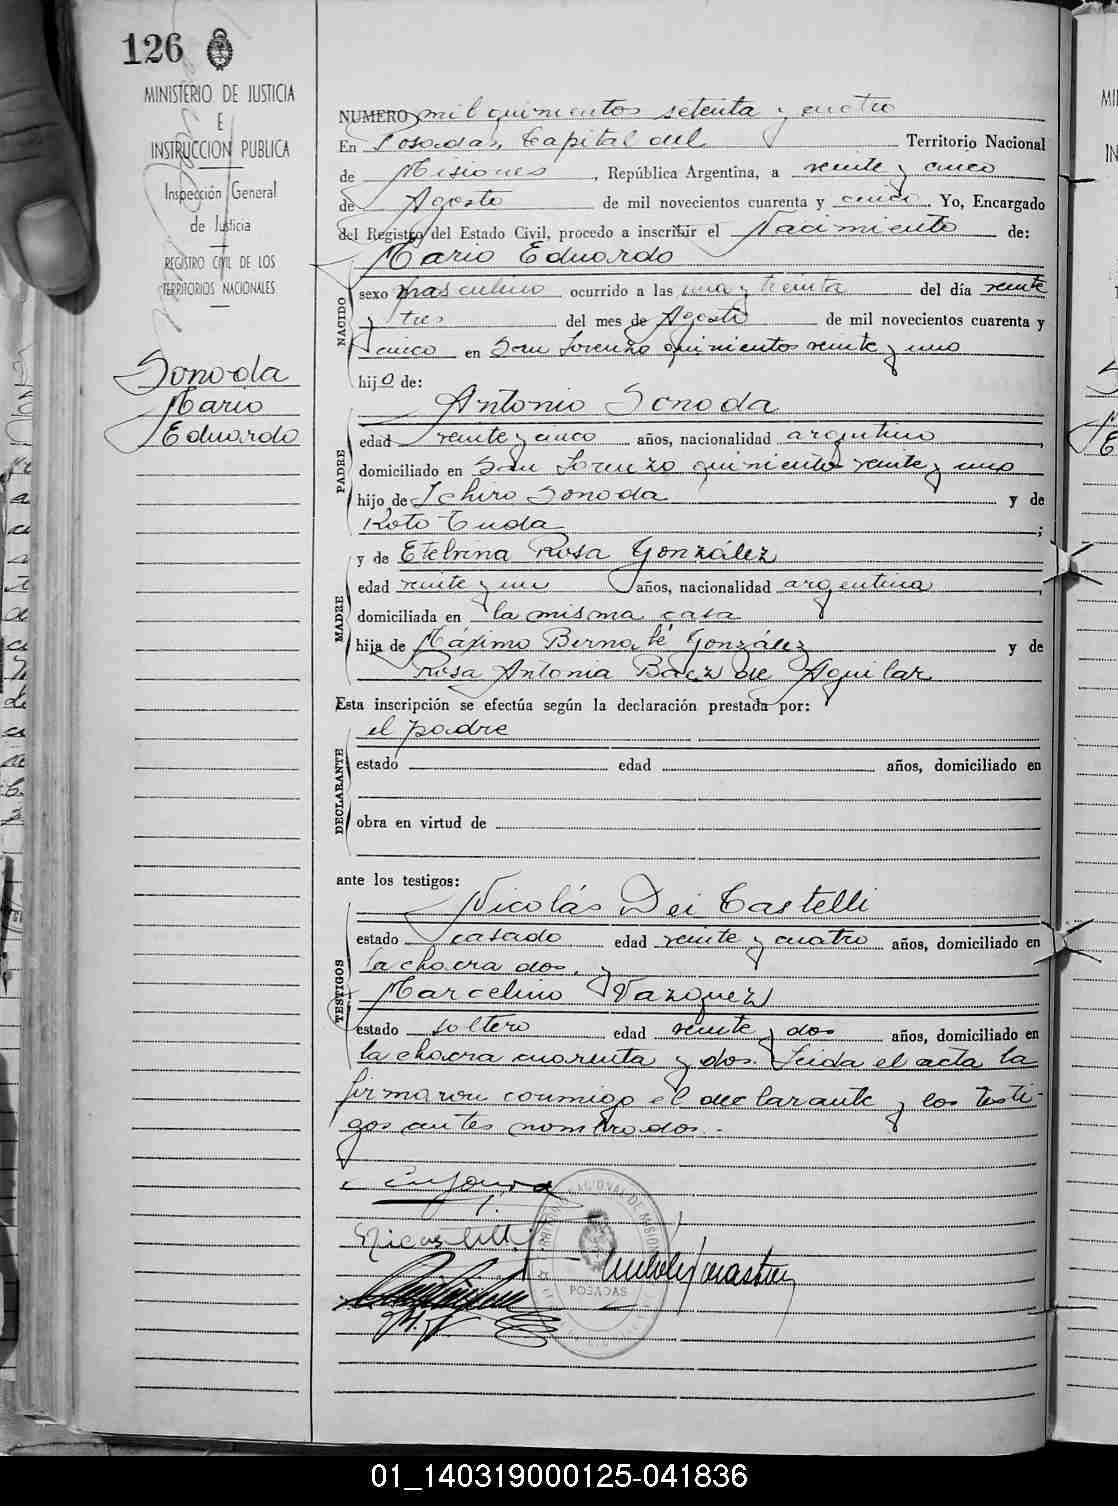 126
MINISTERIO DE JUSTICIA
E
INSTRUCCION PUBLICA
Inspección General
de Justicia
REGISTRO CIVIL DE LOS
TERRITORIOS NACIONALES
Sonoda
Mario
Eduardo
NUMERO mil quinientos setenta y cuatro
En Posadas, Capital del Territorio Nacional
de Misiones, República Argentina, a veinte y cinco
de Agosto de mil novecientos cuarenta y cinco. Yo, Encargado
del Registro del Estado Civil, procedo a inscribir el Nacimiento de:
Mario Eduardo
NACIDO
sexo masculino ocurrido a las una y treinta del día veinte
y tres del mes de Agosto de mil novecientos cuarenta y
cinco en San Lorenzo quinientos veinte y uno
hijo de:
Antonio Sonoda
PADRE
edad veinte y cinco años, nacionalidad argentino,
domiciliado en San Lorenzo quinientos veinte y uno
hijo de Ichiro Sonoda y de
Koto Tuda;
y de Etelvina Rosa González
MADRE
edad veinte y un años, nacionalidad argentina,
domiciliada en la misma casa
hija de Máximo Bernabé González y de
Rosa Antonia Báez de Aguilar
Esta inscripción se efectúa según la declaración prestada por:
el padre
DECLARANTE
estado edad años, domiciliado en
obra en virtud de
ante los testigos:
Nicolás Dei Castelli
TESTIGOS
estado casado edad veinte y cuatro años, domiciliado en
la chacra dos. y
Marcelino Vazquez
estado soltero edad veinte y dos años, domiciliado en
la chacra cuarenta y dos. Leida el acta la
firmaron conmigo el declarante y los testi-
gos antes nombrados.-
POSADAS
01_140319000125-041836